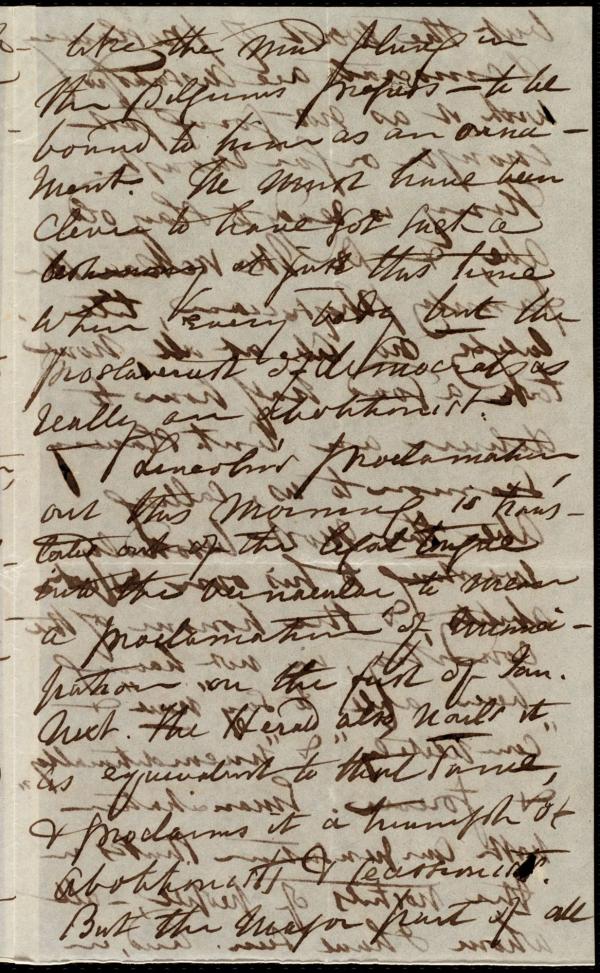 like the mud flung in
the Pilgrims Progress — to be
bound to him as an orna-
ment. He must have been
clever to have got such a
at just this time
when every body but the
proslaveriest of democrats is
really an abolitionist.
Lincoln's Proclamation,
out this morning, is trans-
lated out of the legal tongue
into the vernacular to mean
a proclamation of emanci-
pation on the first of Jan.
next. The Herald also hails it
as equivalent to that same,
& proclaims it a triumph of
abolitionists & secessionists.
But the major part of all